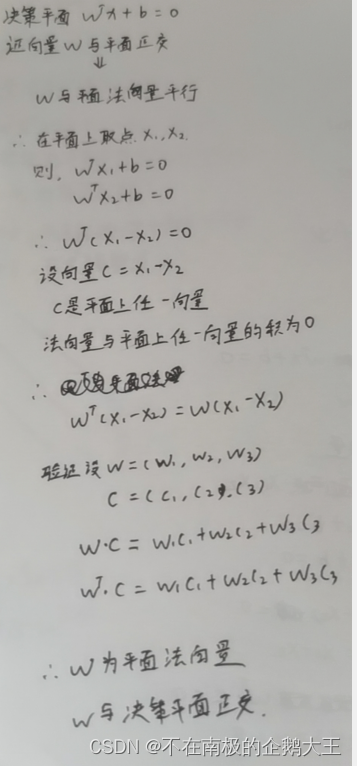 决策平面 wᵀx+b=0
证向量w与平面正交
⇓
w与平面法向量平行
∴ 在平面上取点 x₁,x₂.
则, wᵀx₁+b=0
wᵀx₂+b=0
∴ wᵀ(x₁-x₂)=0
设向量C=x₁-x₂
C是平面上任一向量
法向量与平面上任一向量的积为0
∴
wᵀ(x₁-x₂)=w(x₁-x₂)
验证设 w=(w₁,w₂,w₃)
C=(c₁,c₂,c₃)
w·c=w₁c₁+w₂c₂+w₃c₃
wᵀ·c=w₁c₁+w₂c₂+w₃c₃
∴ w为平面法向量
w与决策平面正交.
CSDN @不在南极的企鹅大王